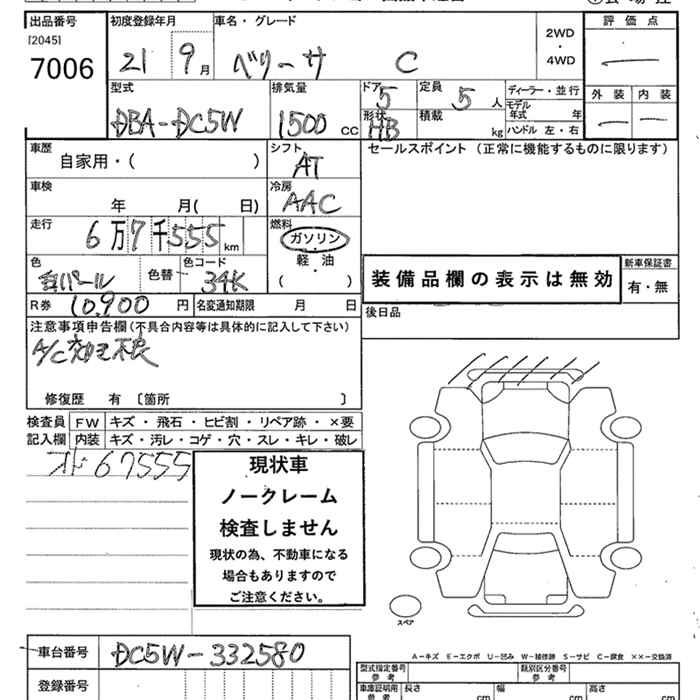 出品番号 初度登録年月 車名・グレード 評価点
[2045]
7006
21 9月 ベリーサ C
2WD
・
4WD
外装 内装
型式 排気量 ドア 5 定員 5人 ディーラー・並行
DBA-DC5W 1500 CC
形状 HB 積載 kg
モデル年式 年
ハンドル 左・右
車歴 シフト セールスポイント (正常に機能するものに限ります)
自家用・( ) AT
車検 冷房
年 月( 日) AAC
走行 燃料
6万7千555km ガソリン
軽・油
( )
色 色替 色コード
白パール 34K
装備品欄の表示は無効
新車保証書
有・無
R券 10,900円 名変通知期限 月 日
後日品
注意事項申告欄(不具合内容等は具体的に記入して下さい)
A/C 効き不良
修復歴 有 [箇所 ]
検査員 FW キズ・飛石・ヒビ割・リペア跡・×要
記入欄 内装 キズ・汚レ・コゲ・穴・スレ・キレ・破レ
オド 67555
現状車
ノークレーム
検査しません
現状の為、不動車になる
場合もありますので
ご注意ください。
スペア
A-キズ E-エクボ U-凹み W-補修跡 S-サビ C-腐食 ××-交換済
車台番号 DC5W-332580
登録番号
型式指定番号 参考 類別区分番号 参考
車庫証明用 参考 長さ cm 幅 cm 高さ cm